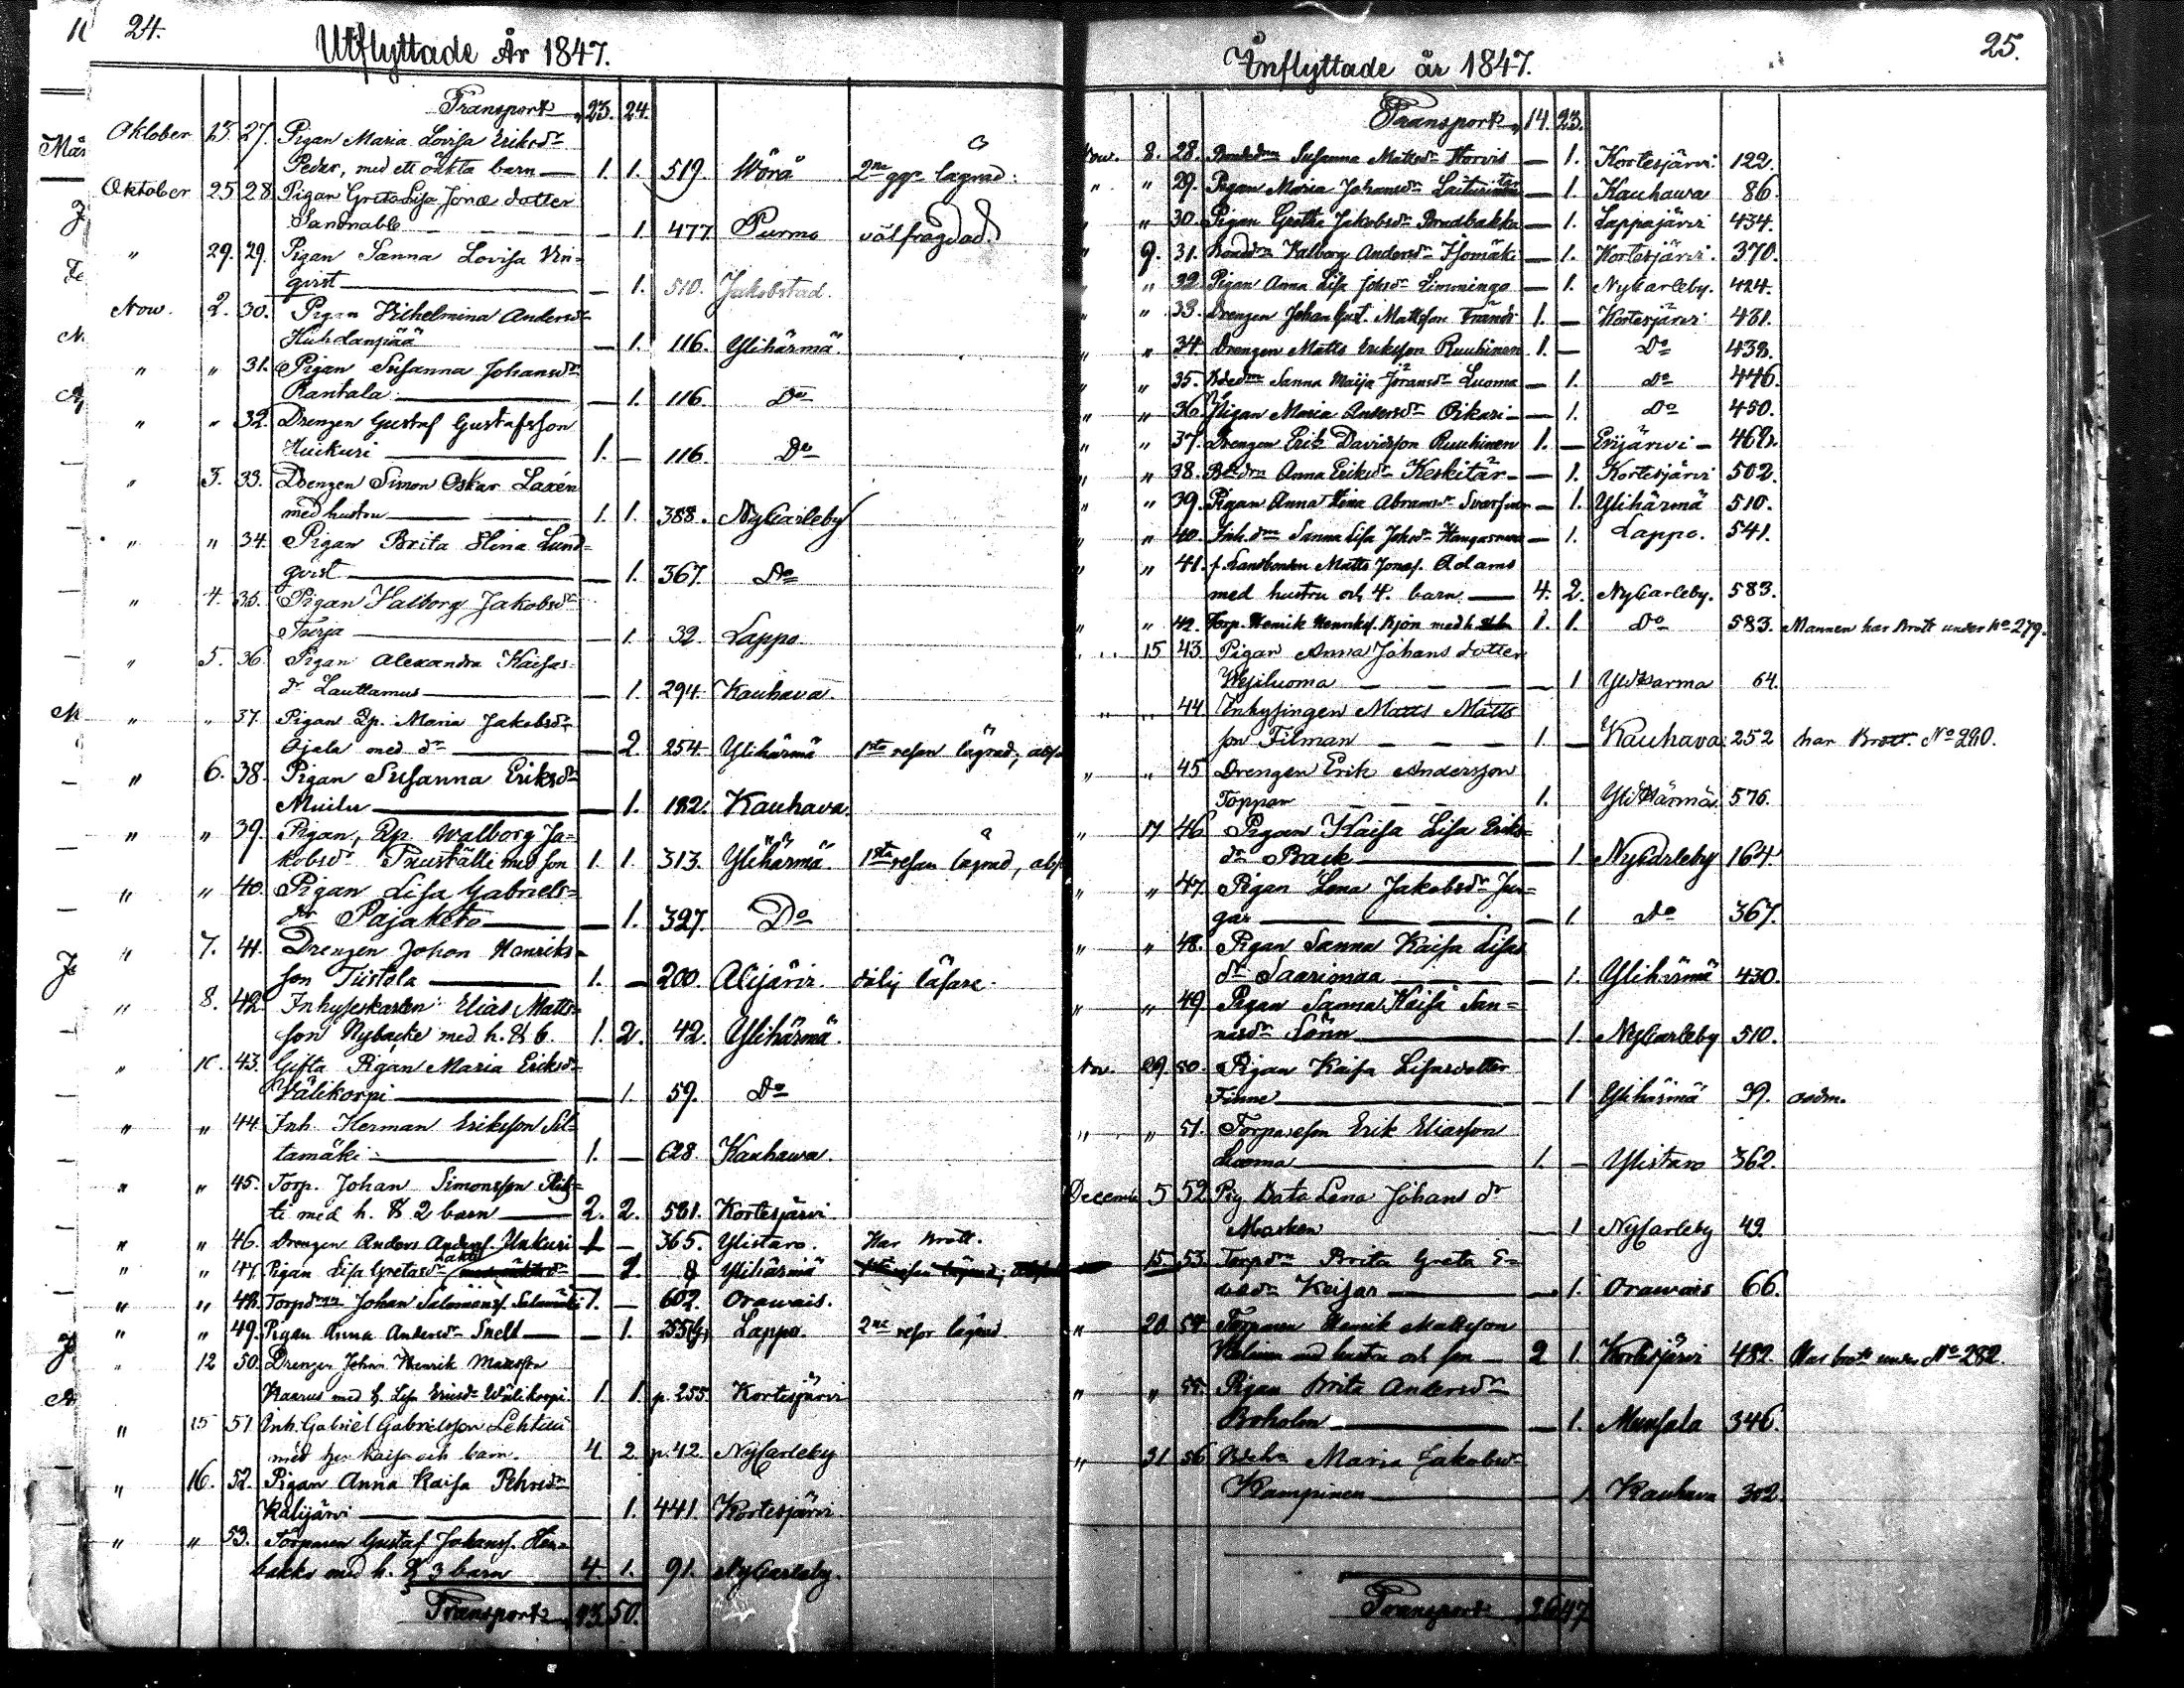 24.
Utflyttade År 1847.
Transport 23. 24.
Oktober 23. 27. Pigan Maria Lovisa Eriksdr
Peder, med ett oäkta barn — 1. 1. 519. Wörå 2ne ggr lägrad:
Oktober 25 28 Pigan Greta Lisa Jonæ dotter
Sandnabb — — 1. 477. Purmo välfrägdad
" 29. 29. Pigan Sanna Lovisa Win=
qvist — — 1. 510. Jakobstad.
Nov. 2. 30. Pigan Wilhelmina Andersdr
— 1. 116. Ylihärmä.
" " 31. Pigan Susanna Johansdr
Rantala — — 1. 116. Do
" " 32. Drengen Gustaf Gustafsson
Huikuri — 1. — 116. Do
" 3. 33. Drengen Simon Oskar Laxén
med hustru — 1. 1. 388. NyCarleby
" " 34. Pigan Brita Stina Lund=
qvist — — 1. 367. Do
" 4. 35. Pigan Valborg Jakobsdr
— 1. 32. Lappo.
" 5. 36. Pigan Alexandra Kaisas=
dr Lauttamus — — 1. 294. Kauhava.
" " 37. Pigan Qp. Maria Jakobsdr
Ojala med dr — — 2. 254. Ylihärmä 1sta resan lägrad,
" 6. 38. Pigan Susanna Eriksdr
Muilu — — 1. 182. Kauhava.
" " 39. Pigan, Qp. Walborg Ja=
kobsdr med son 1. 1. 313. Ylihärmä. 1sta resan lägrad,
" " 40. Pigan Lisa Gabriels=
dr Pajaketo — — 1. 327. Do
" 7. 41. Drengen Johan Henriks=
son Tiistola — 1. — 200. Alijärvi. dålig läsare.
" 8. 42 Inhyseskarlen Elias Matts=
son Nybacke med h. & b. 1. 2. 42. Ylihärmä.
" 10. 43. Gifta Pigan Maria Eriksdr
Välikorpi — — 1. 59. Do
" " 44. Inh. Herman Eriksson Sil=
tamäki — 1. — 628. Kauhawa.
" " 45. Torp. Johan Simonsson
ti med h. & 2 barn — 2. 2. 581. Kortesjärvi.
" " 46. Drengen Anders Anderss. Hukuri 1 — 365. Ylistaro. Har Brott.
" " 47. Pigan Lisa Gretasdr — Ylihärmä
" " 48. Johan Salomonss. 1. — 602. Orawais.
" " 49. Pigan Anna Andersdr Snell — — 1. Lappo. 2ne resor lägrad.
" 12 50. Drengen Johan Henrik Mattsson
Kaarus med h. Lisa Ericsdr Wälikorpi 1. 1. p. 255. Kortesjärvi
" 15 51 Inh. Gabriel Gabrielsson
med h. Kaisa och barn. 4 2 p. 42 NyCarleby
" 16. 52. Pigan Anna Kaisa Pehrsdr
Kalijärvi — — 1. 441. Kortesjärvi.
" " 53. Torparen Gustaf Johanss.
backa med h. & 3 barn 4. 1. 91. NyCarleby.
Transport 50.
25.
Inflyttade år 1847.
Transport 14. 23.
Nov. 8. 28. Susanna Mattsdr Horvis — 1. Kortesjärvi 122.
" " 29. Pigan Maria Johansdr — 1. Kauhawa 86.
" " 30. Pigan Gretha Jakobsdr Bredbakka — 1. Lappajärvi 434.
" 9. 31. Walborg Andersdr Isomäki — 1. Kortesjärvi. 370.
" " 32. Pigan Anna Lisa Johsdr Limmingo — 1. NyCarleby. 424.
" " 33. Drengen Johan Gust. Mattsson 1. — Kortesjärvi 431.
" " 34. Drengen Matts Eriksson Ruuhinen 1. — Do 438.
" " 35. Sanna Maija Joransdr Luoma — 1. Do 446.
" " 36. Pigan Maria Andersdr Oikari — — 1. Do 450.
" " 37. Drengen Erik Davidsson Ruuhinen 1. — Evijärvi — 462.
" " 38. Anna Eriksdr — 1. Kortesjärvi 502.
" " 39. Pigan Anna Lena Abramsdr — 1. Ylihärmä 510.
" " 40. Inh.drn Sanna Lisa Johsdr — 1. Lappo. 541.
" " 41. f. Landbonden Matts Jonass. Adams
med hustru och 4. barn — 4. 2. NyCarleby. 583.
" " 42. Torp. Henrik med h. 1. 1. Do 583. Mannen har Brott under No 279.
" 15 43. Pigan Anna Johans dotter
Wesiluoma — — 1 Ylihärmä 64.
" " 44. Inhysingen Matts Matts
son Filman — 1. — Kauhava 252 har Brott. No 280.
" " 45 Drengen Erik Andersson
Toppar — 1. Ylihärmä. 576.
" 17 46. Pigan Kaisa Lisa Eriks=
dr Back — — 1 NyCarleby 164
" " 47. Pigan Lena Jakobsdr Jun=
gar — — 1. Do 367.
" " 48. Pigan Sanna Kaisa Lisas
dr Saarimaa — — 1. Ylihärmä 430.
" " 49. Pigan Sanna Kaisa San=
nasdr Lönn — — 1. NyCarleby 510.
Nov. 29. 50. Pigan Kaisa Lisasdotter
Finne — — 1 Ylihärmä 39. oadm.
" " 51. Torpareson Erik Eliasson
Luoma — 1. — Ylistaro 362.
December 5 52. Pig. Lena Johans dr
— 1 NyCarleby 49.
15. 53. Brita Greta
Keisar — — 1. Orawais 66.
" 20 54 Torparen Henrik Mattsson
med hustru och son — 2 1. Kortesjärvi 482. Har brott under No 282.
" " 55. Pigan Brita Andersdr
Boholm — — 1. Munsala 346.
" 31 56 Maria Jakobsdr
Kampinen — 1 Kauhava 302.
Transport 26 47